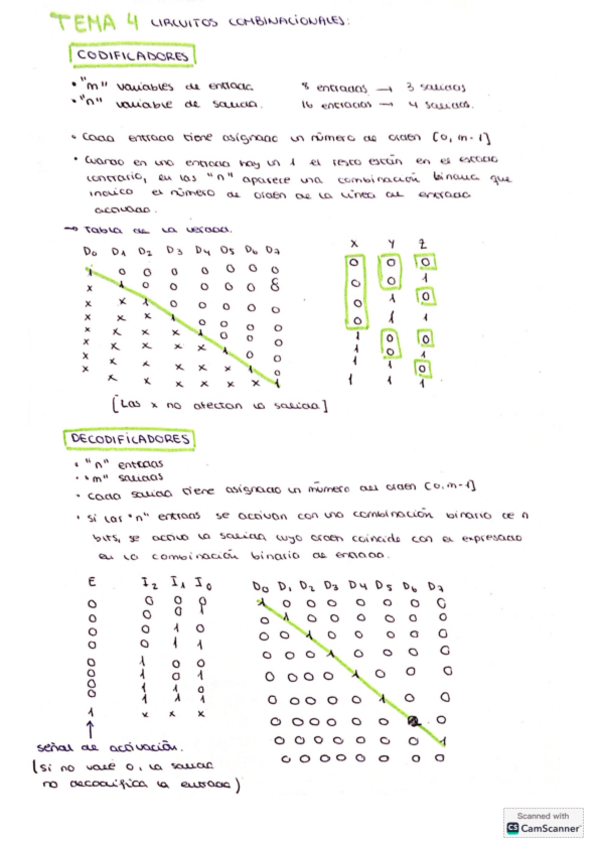 TEMA 4 CIRCUITOS COMBINACIONALES:
CODIFICADORES
• "m" variables de entrada. 8 entradas → 3 salidas
• "n" variable de salida. 16 entradas → 4 salidas.
• Cada entrada tiene asignado un número de orden [0, m-1]
• Cuando en una entrada hay un 1 el resto están en el estado
contrario, en las "n" aparece una combinación binaria que
indica el número de orden de la línea de entrada
activada.
→ Tabla de la verdad.
D0 D1 D2 D3 D4 D5 D6 D7 X Y Z
1 0 0 0 0 0 0 0 0 0 0
x 1 0 0 0 0 0 8 0 0 1
x x 1 0 0 0 0 0 0 1 0
x x x 1 0 0 0 0 0 1 1
x x x x 1 0 0 0 1 0 0
x x x x x 1 0 0 1 0 1
x x x x x x 1 0 1 0
x x x x x x 1 1 1 1
[Las x no afectan la salida]
DECODIFICADORES
• "n" entradas
• "m" salidas
• Cada salida tiene asignado un número del orden [0, m-1]
• Si las "n" entradas se activan con una combinación binaria de n
bits, se activa la salida cuyo orden coincide con el expresado
en la combinación binaria de entrada.
E I2 I1 I0 D0 D1 D2 D3 D4 D5 D6 D7
0 0 0 0 1 0 0 0 0 0 0 0
0 0 0 1 0 1 0 0 0 0 0 0
0 0 1 0 0 0 1 0 0 0 0 0
0 0 1 1 0 0 0 1 0 0 0 0
0 1 0 0 0 0 0 0 1 0 0 0
0 1 0 1 0 0 0 0 0 1 0 0
0 1 1 0 0 0 0 0 0 0 0
0 1 1 1 0 0 0 0 0 0 0 1
1 x x x 0 0 0 0 0 0 0 0
señal de activación.
(si no vale 0, la salida
no decodifica la entrada)
Scanned with
CS CamScanner